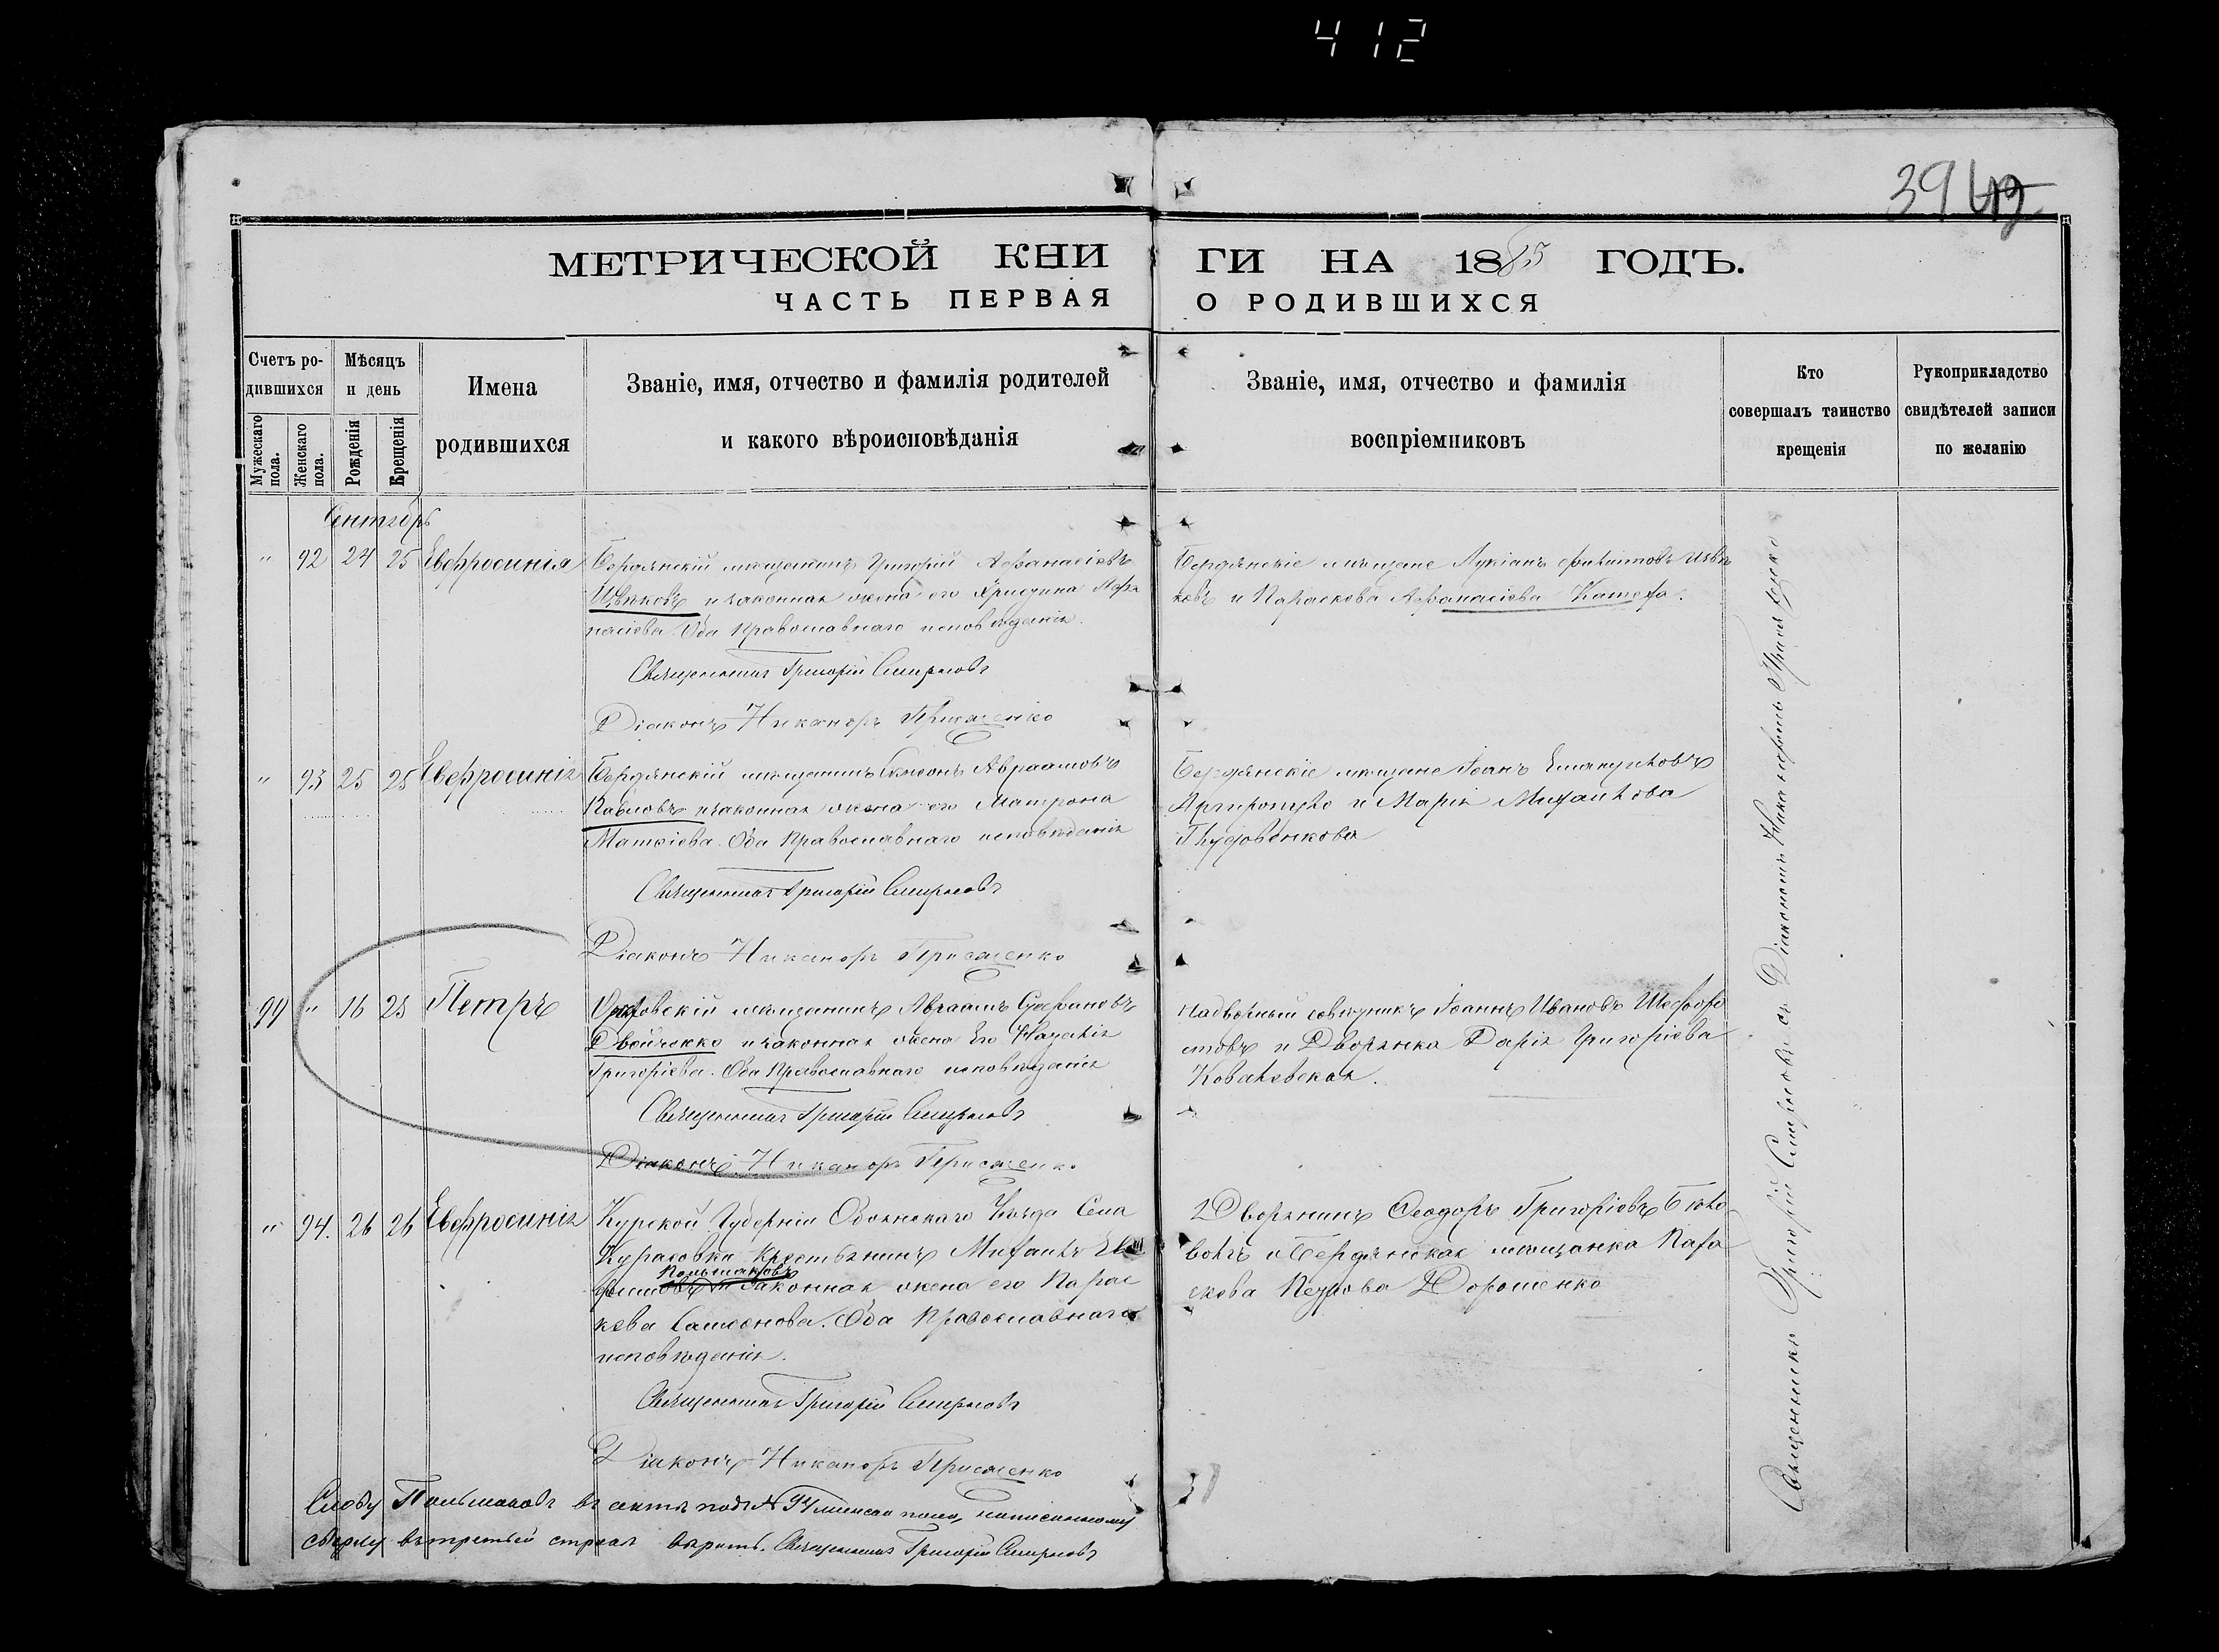 412
39
МЕТРИЧЕСКОЙ КНИГИ НА 1885 ГОДЪ.
ЧАСТЬ ПЕРВАЯ О РОДИВШИХСЯ
Счетъ родившихся
Мужескаго пола.
Женскаго пола.
Мѣсяцъ и день
Рожденія
Крещенія
Имена родившихся
Званіе, имя, отчество и фамилія родителей
и какого вѣроисповѣданія
Званіе, имя, отчество и фамилія
воспріемниковъ
Кто
совершалъ таинство
крещенія
Рукоприкладство
свидѣтелей записи
по желанію
Сентябрь
" 92 24 25 Евфросинія
Бердянскій мѣщанинъ Григорій Аѳанасіевъ
и законная жена его Христина Аѳа
насіева. Оба Православнаго исповѣданія.
Священникъ Григорій Смирновъ
Діаконъ Никаноръ Герисименко
Бердянскіе мѣщане Лукіанъ
ковъ и Параскева Аѳанасіева
" 93 25 25 Евфросинія
Бердянскій мѣщанинъ Симеонъ Авраамовъ
Павловъ и законная жена его Матрона
Матѳіева. Оба Православнаго исповѣданія
Священникъ Григорій Смирновъ
Діаконъ Никаноръ Герисименко
Бердянскіе мѣщане Іоанъ Емануиловъ
Аргиропуло и Марія Михаилова
99 " 16 25 Петръ
Орѣховскій мѣщанинъ Авраамъ Стефановъ
Двойченко и законная жена его Наталія
Григоріева. Оба Православнаго исповѣданія
Священникъ Григорій Смирновъ
Діаконъ Никаноръ Герисименко
Надворный совѣтникъ Іоаннъ Ивановъ
и Дворянка Дарія Григоріева
Ковалевская.
" 94. 26 26 Евфросинія
Курской Губерніи Обоянскаго Уѣзда Села
Курасовки крестьянинъ Михаилъ
Польшаковъ
и законная жена его Парас
кева Симеонова. Оба Православнаго
исповѣданія.
Священникъ Григорій Смирновъ
Діаконъ Никаноръ Герисименко
Дворянинъ Ѳеодоръ Григоріевъ
и Бердянская мѣщанка Пара
скева Петрова Дорошенко
Священникъ Григорій Смирновъ съ Діакономъ Никаноромъ
Слову Польшаковъ въ актѣ подъ № 94 женска пола, написанному
сверху въ третьей строкѣ вѣрить. Священникъ Григорій Смирновъ